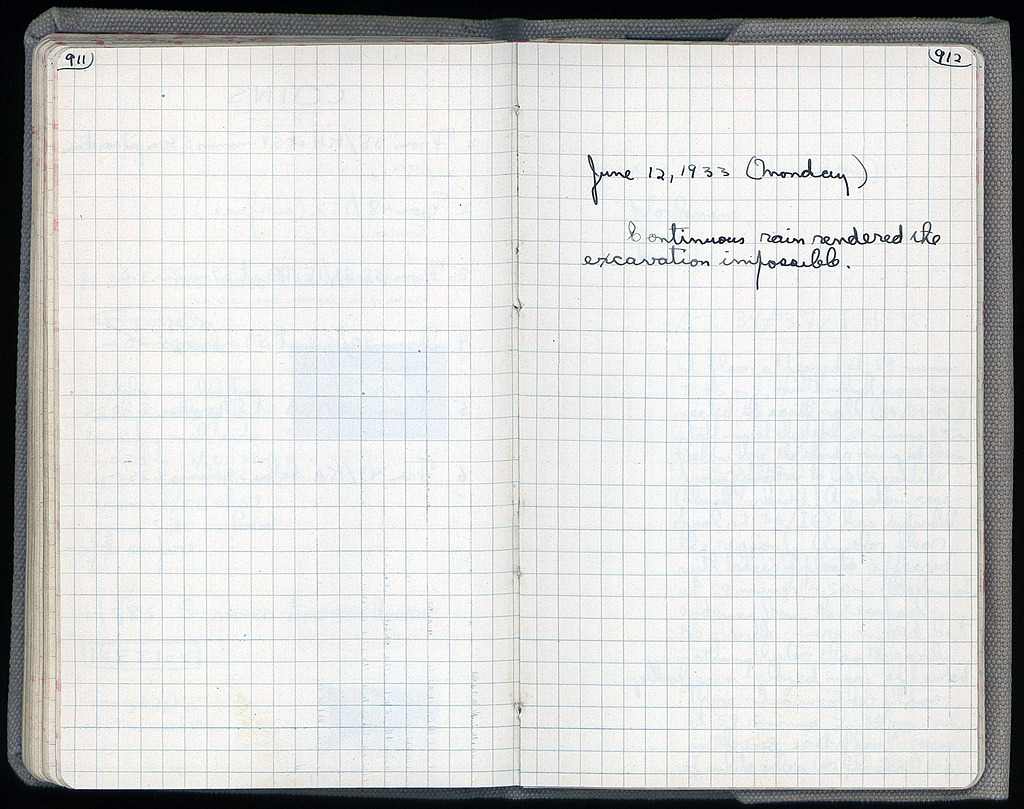 911
912
June 12, 1933 (Monday)
Continuous rain rendered the
excavation impossible.